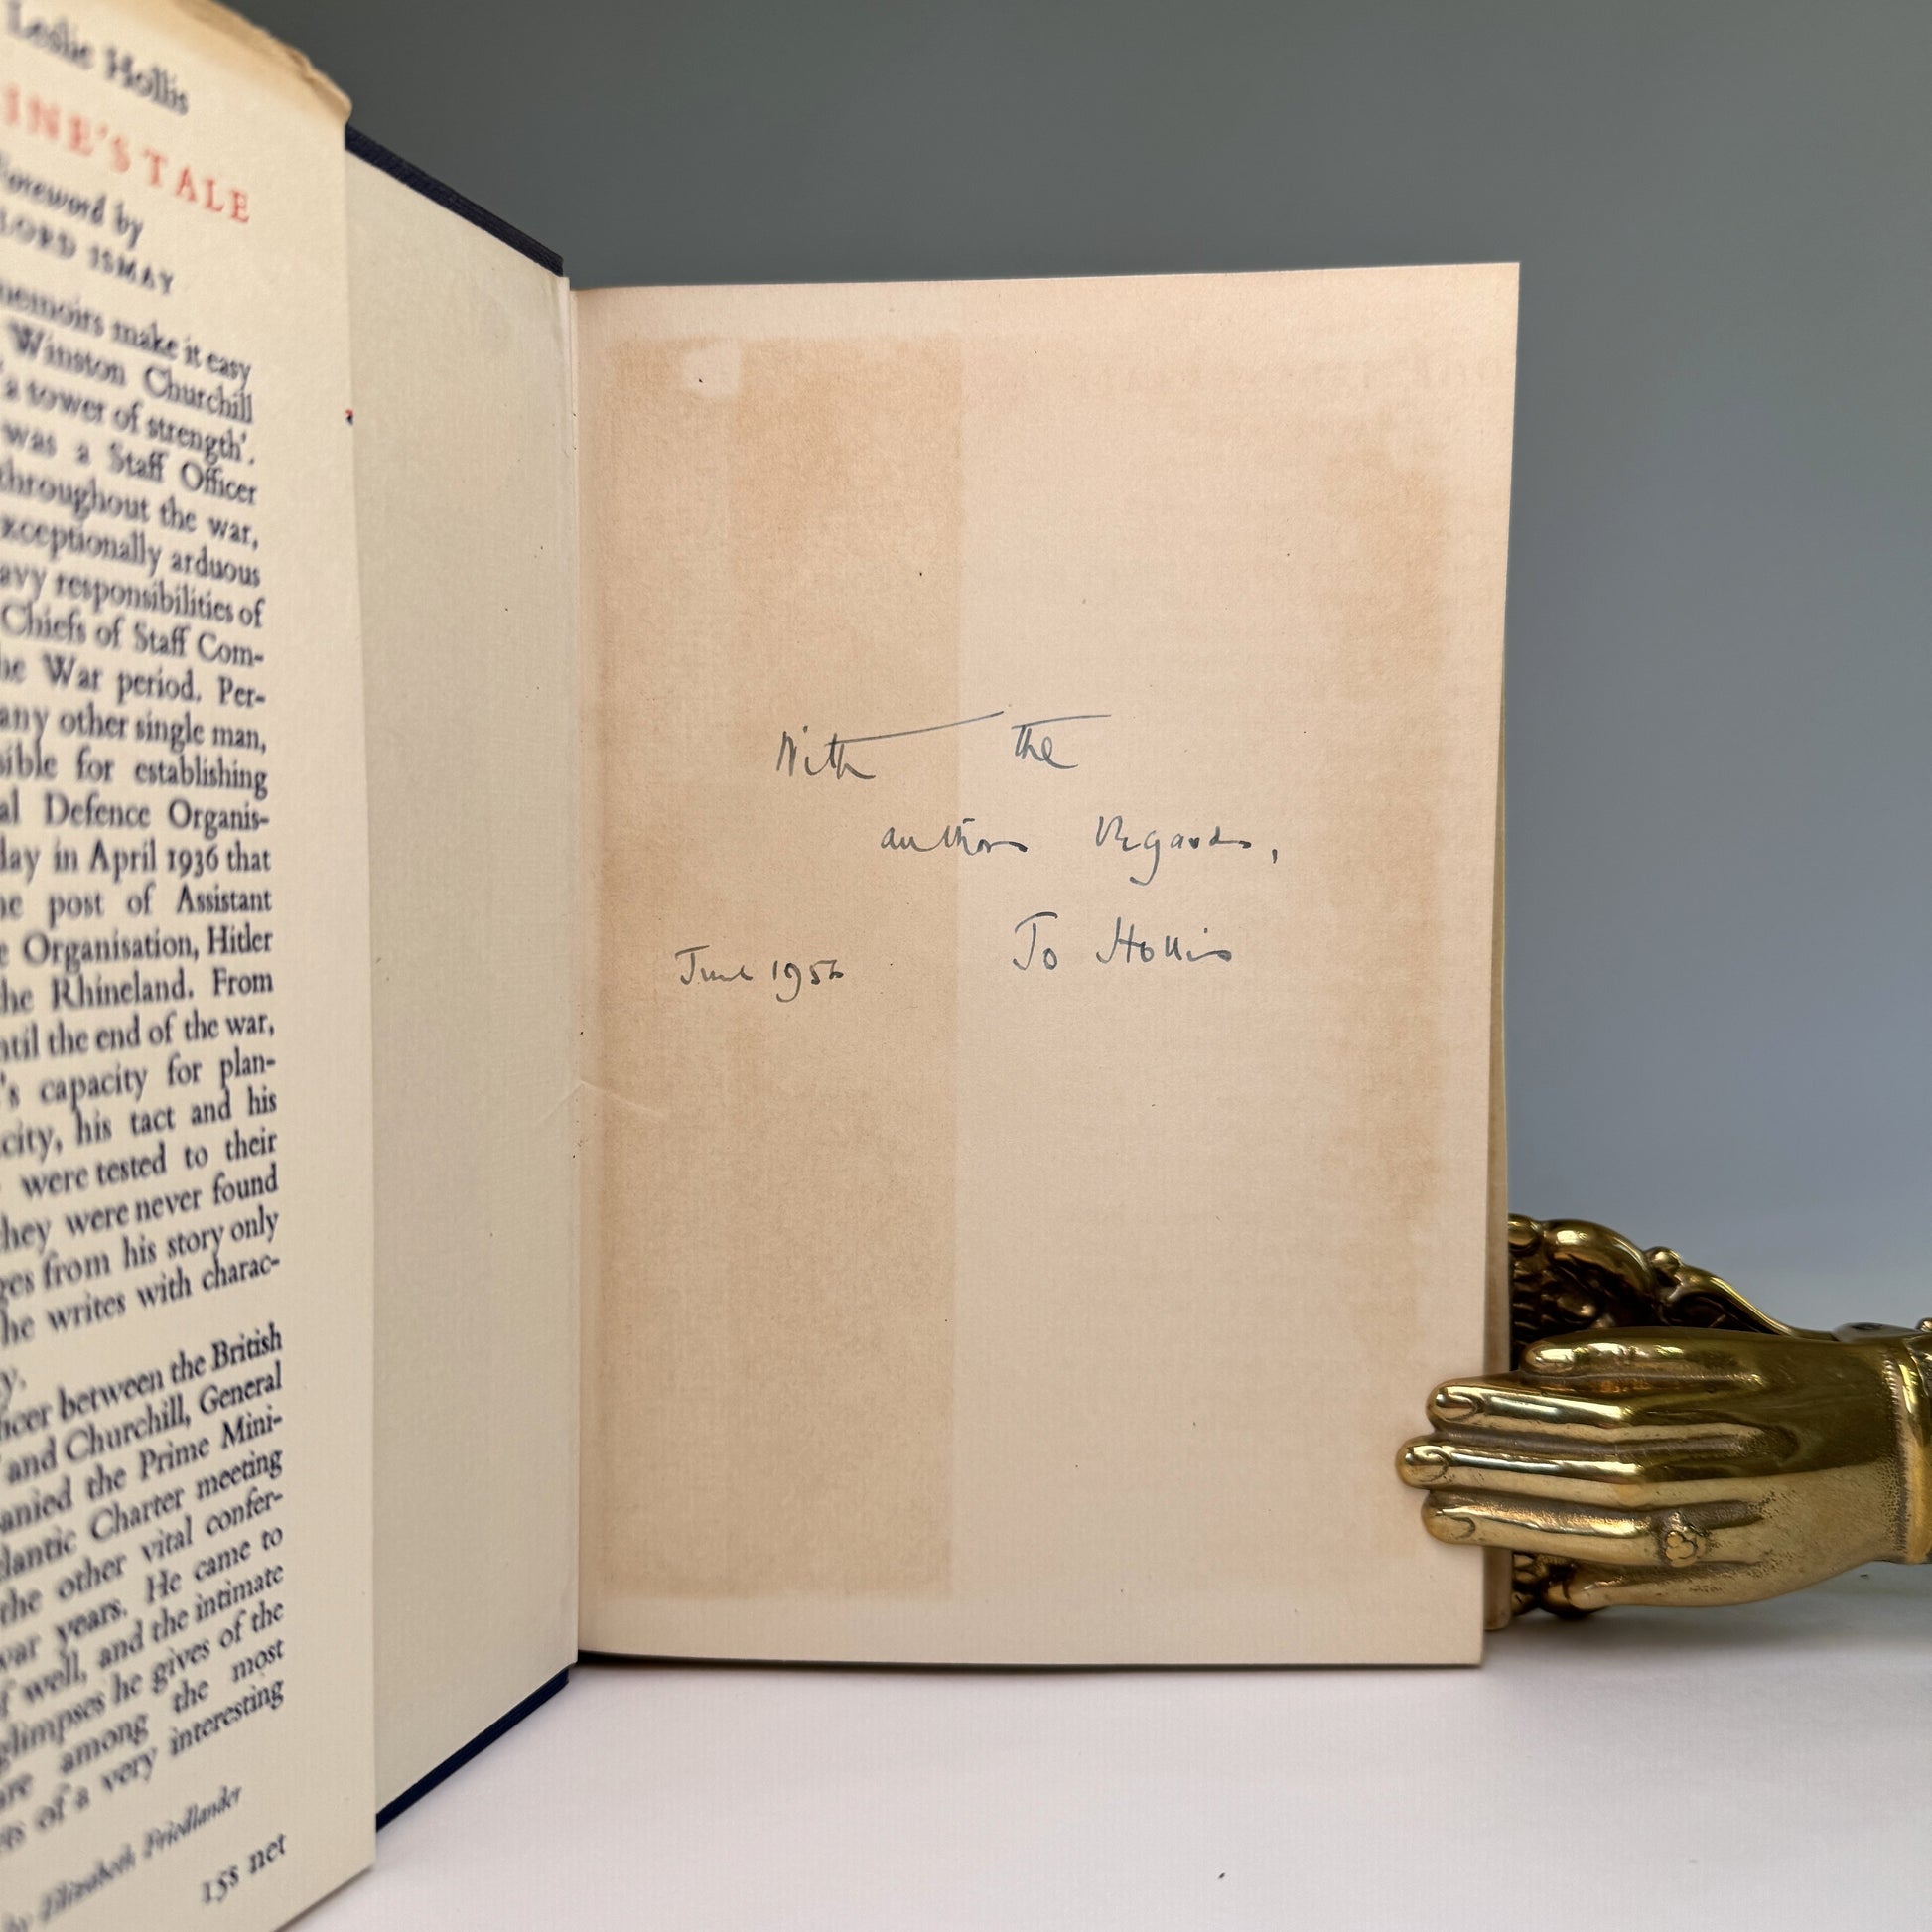 Leslie Hollis
INE'S TALE
Foreword by
LORD ISMAY
memoirs make it easy
Winston Churchill
'a tower of strength'.
was a Staff Officer
throughout the war,
exceptionally arduous
avy responsibilities of
Chiefs of Staff Com-
he War period. Per-
any other single man,
sible for establishing
al Defence Organis-
day in April 1936 that
he post of Assistant
e Organisation, Hitler
he Rhineland. From
ntil the end of the war,
's capacity for plan-
city, his tact and his
were tested to their
they were never found
ges from his story only
he writes with charac-
y.
ficer between the British
and Churchill, General
anied the Prime Mini-
lantic Charter meeting
the other vital confer-
war years. He came to
f well, and the intimate
glimpses he gives of the
are among the most
ts of a very interesting
by Elizabeth Friedlander
15s net
With the
authors Regards,
Jo Hollis
June 1956